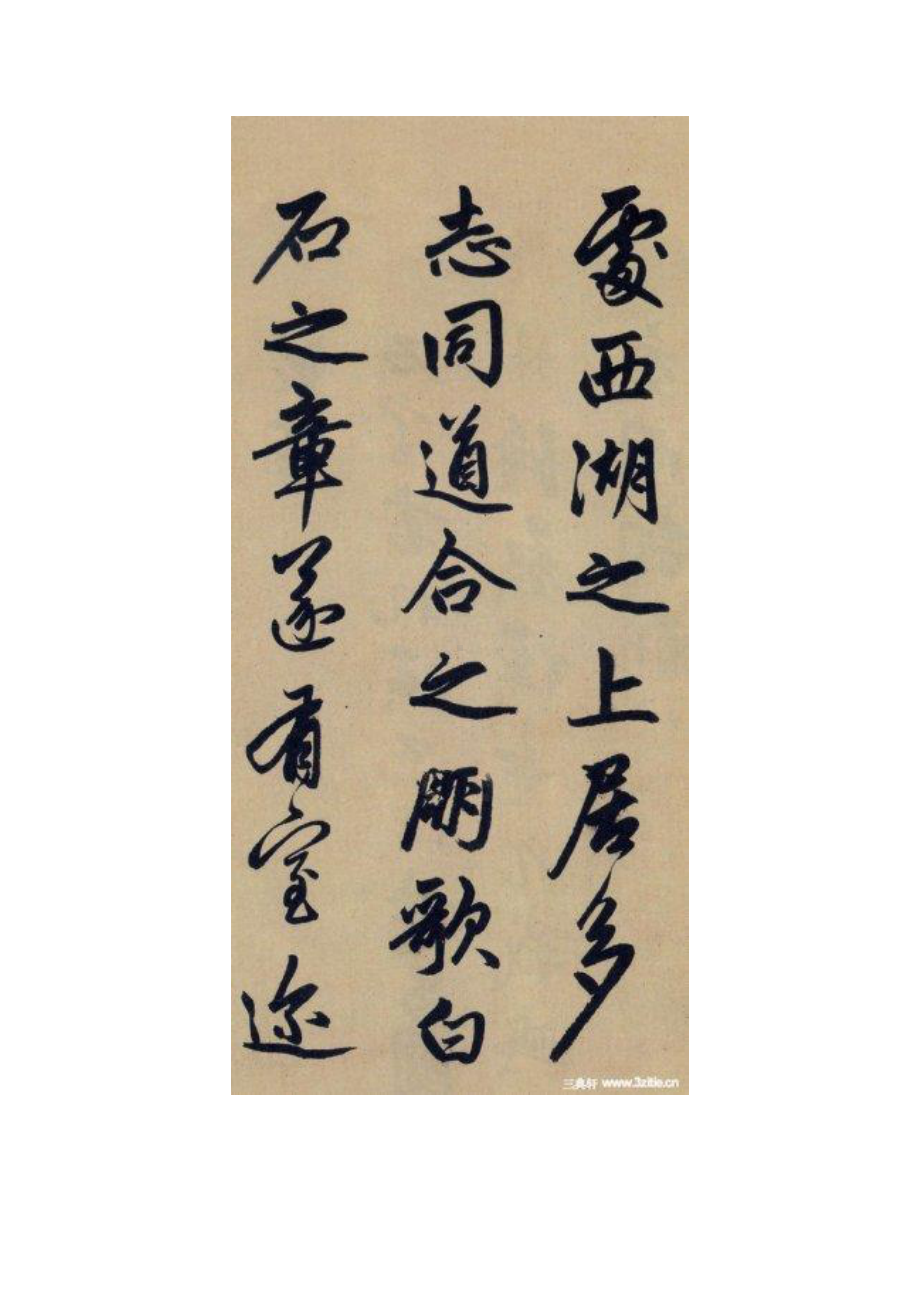 處西湖之上居多
志同道合之朋歌白
石之章遂有室迩
三典轩 www.3zitie.cn